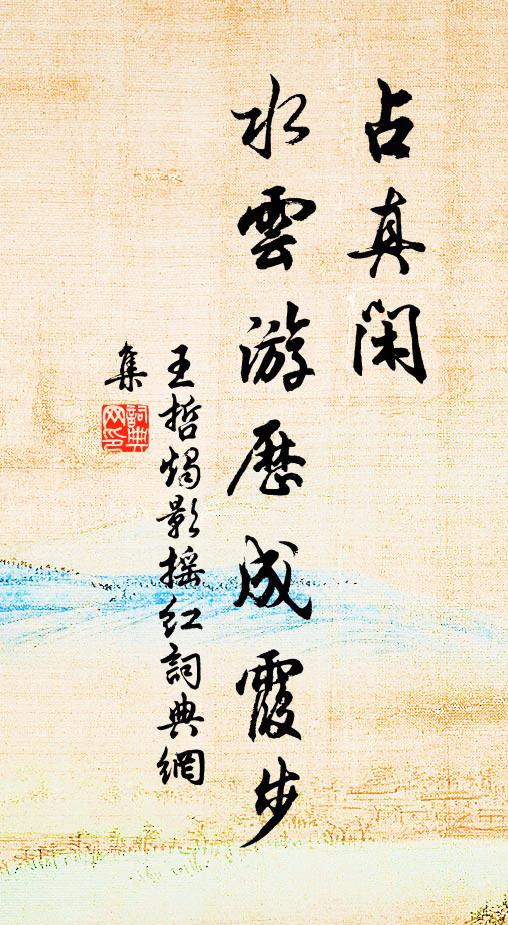 占真闲
水雲游歷成霞步
王哲燭影摇红詞典網
集
詞典
网印